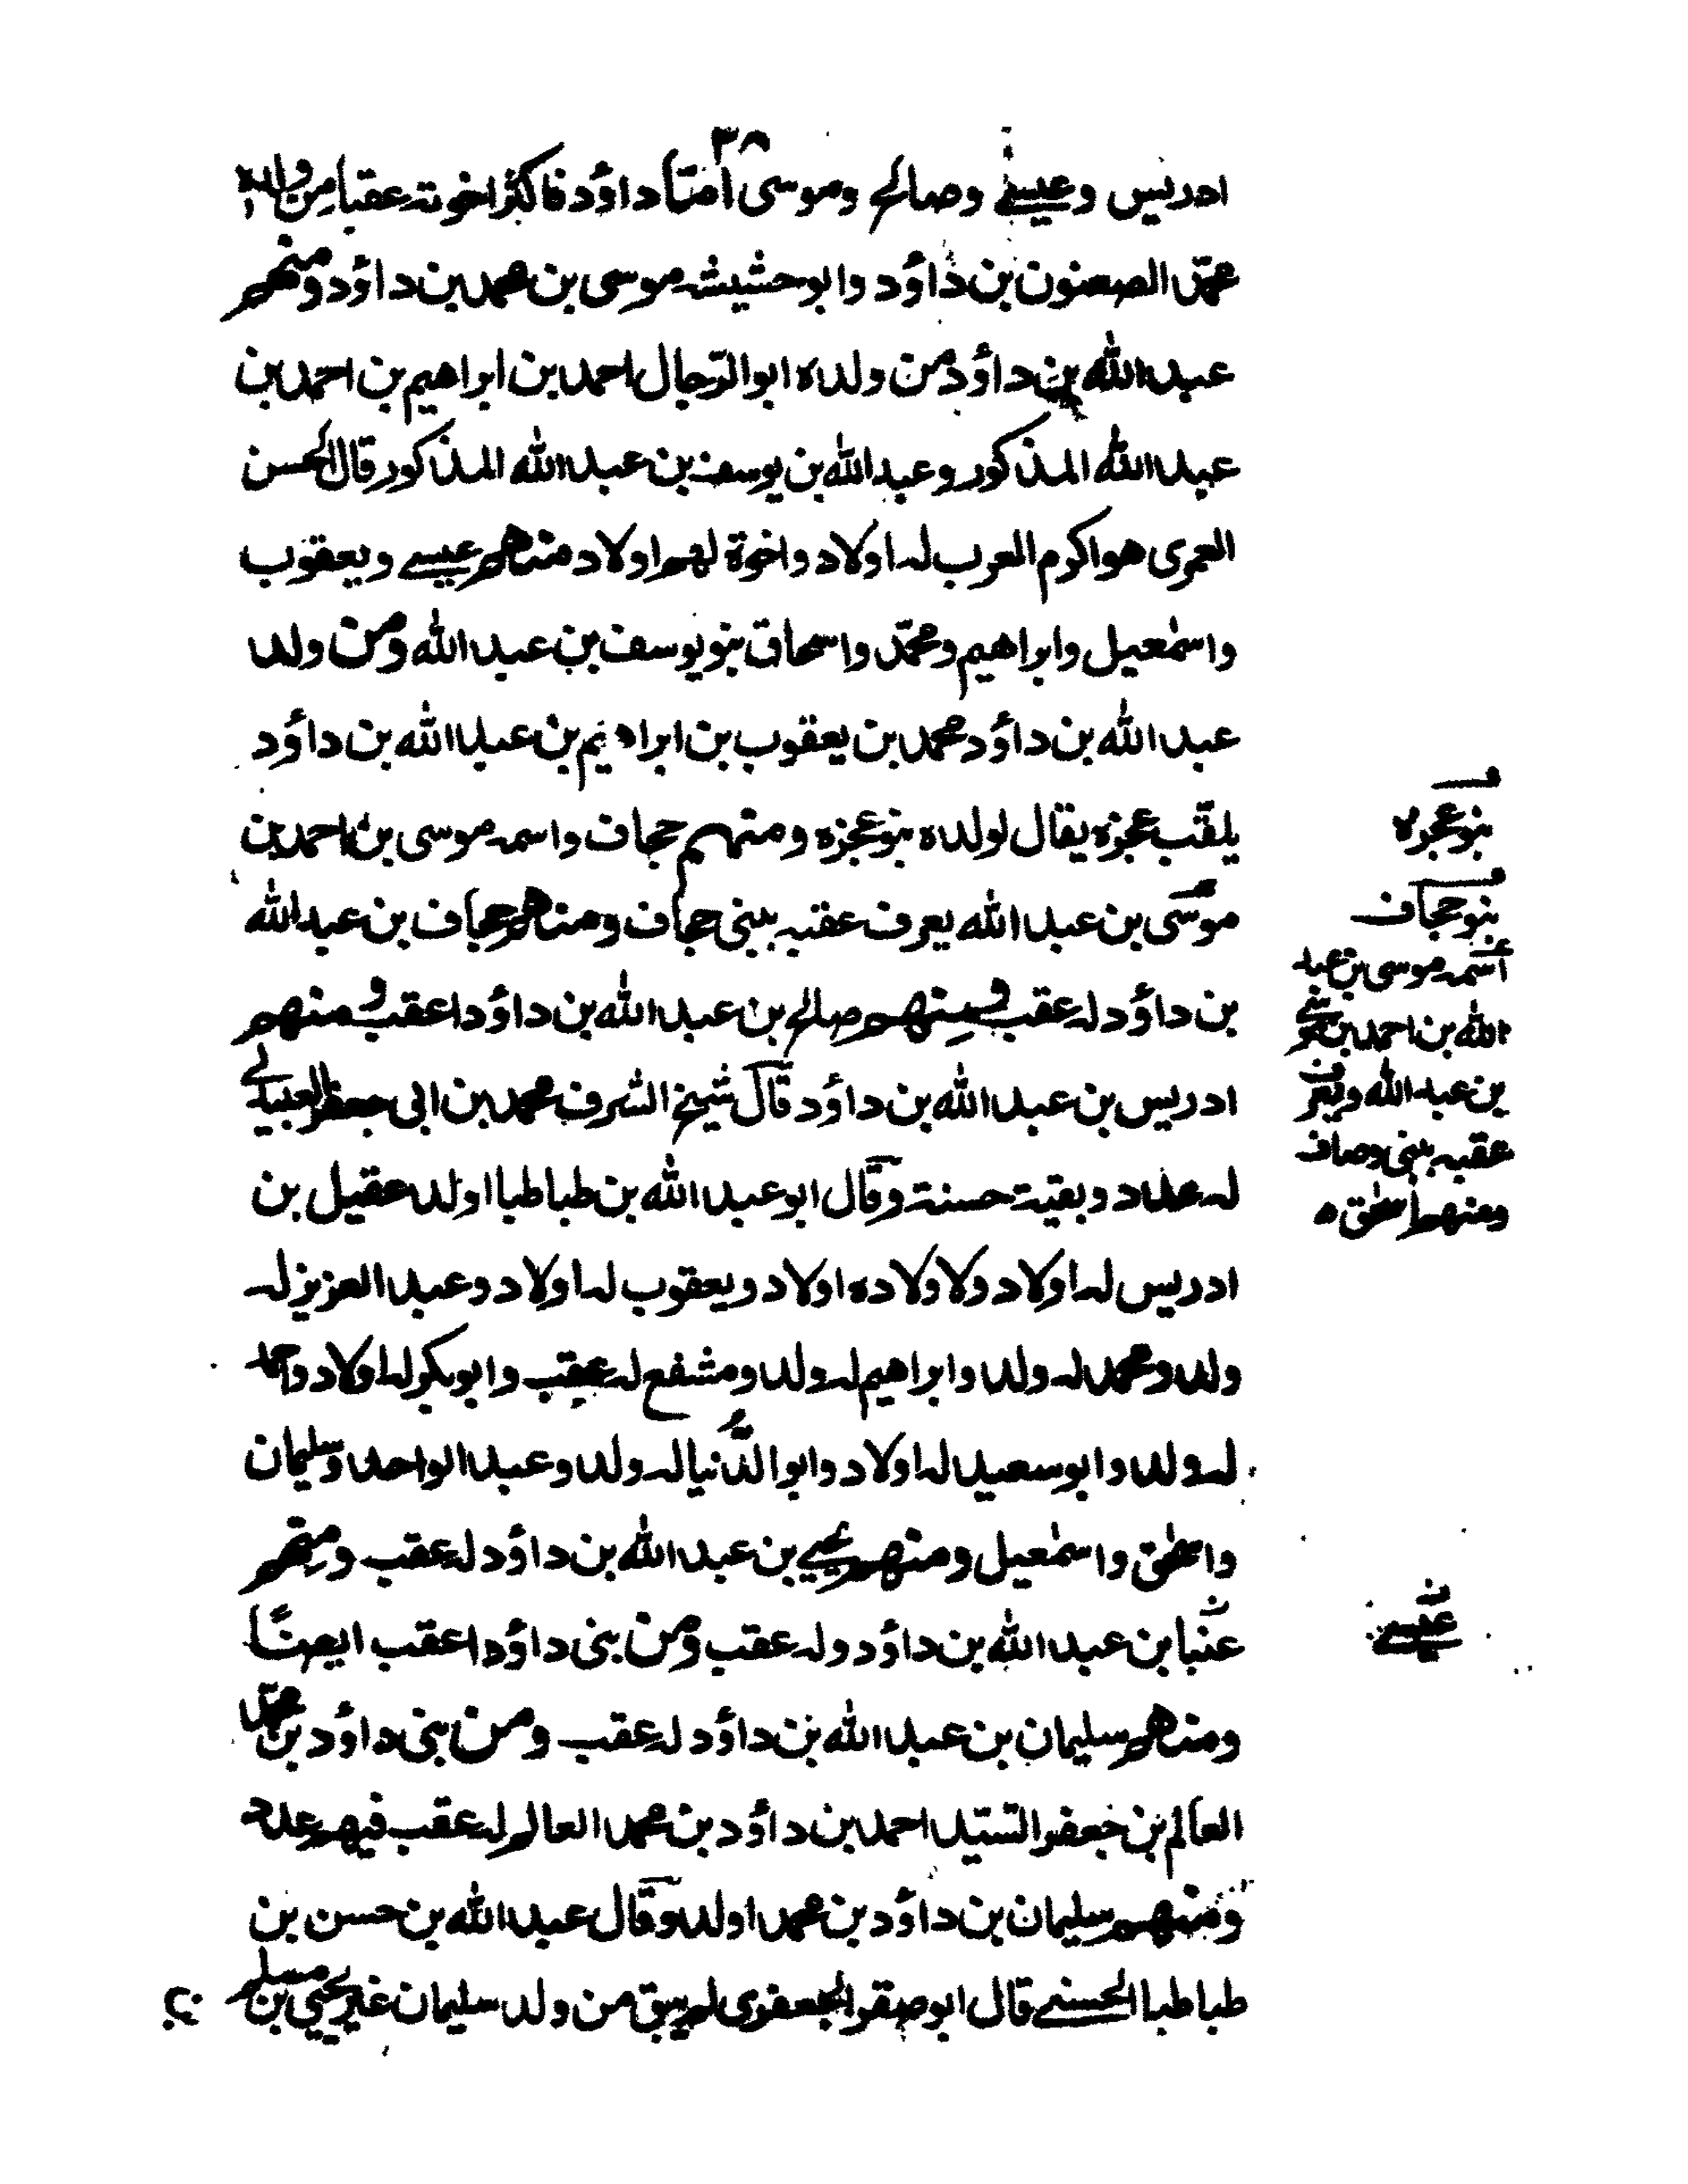 ٣٨
ادريس وعيسى وصالح وموسى امّا داؤد فاكثر اخوته عقبا من ولده
محمّد الصعنون بن داؤد وابو حشيشه موسى بن محمد بن داؤد ومنهم
عبد الله بن داؤد من ولده ابو الرّجال احمد بن ابراهيم بن احمد بن
عبد الله المذكور وعبد الله بن يوسف بن عبد الله المذكور قال الحسن
العمرى هو اكرم العرب له اولاد واخوة لهم اولاد منهم عيسى ويعقوب
واسمٰعيل وابراهيم ومحمّد واسحاق بنو يوسف بن عبد الله ومن ولد
عبد الله بن داؤد محمد بن يعقوب بن ابراهيم بن عبد الله بن داؤد
يلقّب عجزه يقال لولده بنو عجزه ومنهم حجاف واسمه موسى بن احمد بن
موسى بن عبد الله يعرف عقبه ببنى حجاف ومنهم حجاف بن عبد الله
بن داؤد له عقب ومنهم صالح بن عبد الله بن داؤد اعقب ومنهم
ادريس بن عبد الله بن داؤد قال شيخ الشرف محمد بن ابى جعفر العبيدلى
له عداد وبقية حسنة وقال ابو عبد الله بن طباطبا اولد عقيل بن
ادريس له اولاد ولاولاده اولاد ويعقوب له اولاد وعبد العزيز له
ولد ومحمد له ولد وابراهيم له ولد ومشفع له عقب وابو بكر له اولاد واحمد
له ولد وابو سعيد له اولاد وابو الدّنيا له ولد وعبد الواحد وسليمان
واسحٰق واسمٰعيل ومنهم يحيى بن عبد الله بن داؤد له عقب ومنهم
عنبا بن عبد الله بن داؤد وله عقب ومن بنى داؤد اعقب ايضًا
ومنهم سليمان بن عبد الله بن داؤد له عقب ومن بنى داؤد بن محمّد
العالم بن جعفر السيّد احمد بن داؤد بن محمد العالم له عقب فيهم عدد
ومنهم سليمان بن داؤد بن محمد اولد وقال عبد الله بن حسن بن
طباطبا الحسنى قال ابو صقر الجعفرى لم يبق من ولد سليمان غير يحيى بن مسلم
بنو عجزه
بنو حجاف
اسمه موسى بن عبد
الله بن احمد بن موسى
بن عبد الله ويعرف
عقبه ببنى
ومنهم اسحٰق
عيسى